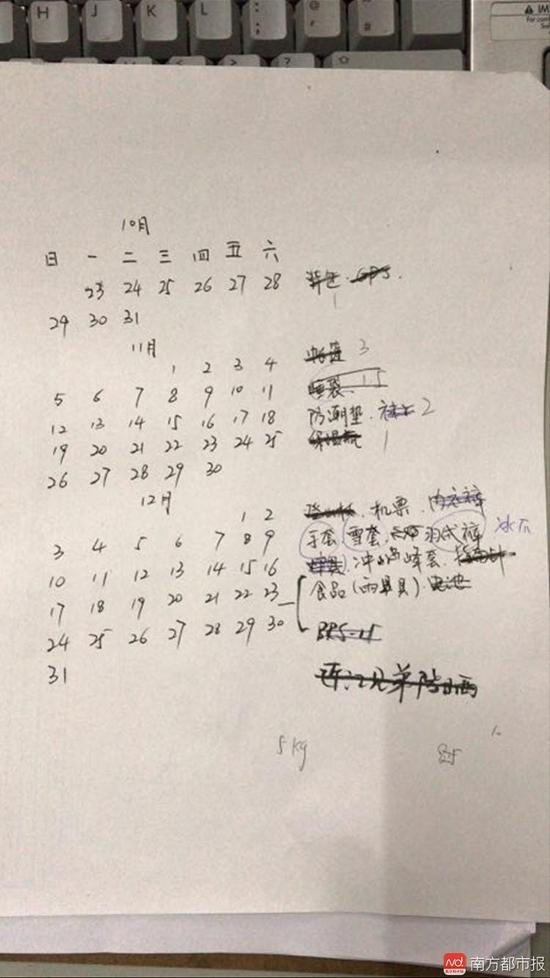 H J K L : ; " ' @ #
10月
日 一 二 三 四 五 六
23 24 25 26 27 28 背包 GPS
1
29 30 31
11月
1 2 3 4 帐篷 3
5 6 7 8 9 10 11 睡袋 15
12 13 14 15 16 17 18 防潮垫 2
19 20 21 22 23 24 25 保温瓶 1
26 27 28 29 30
12月
1 2 登山杖 机票 内衣裤
3 4 5 6 7 8 9 手套 雪套 羽绒裤 冰爪
10 11 12 13 14 15 16 冲 套 指南针
17 18 19 20 21 22 23 食品 (雨具) 电池
24 25 26 27 28 29 30
31
5 kg
南方都市报